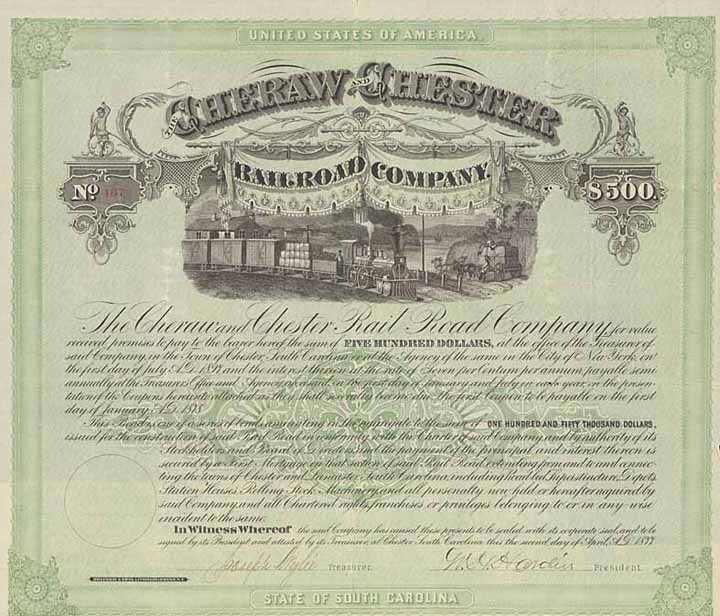 UNITED STATES OF AMERICA.
THE CHERAW AND CHESTER
RAILROAD COMPANY.
No 167
$500.
The Cheraw and Chester Rail Road Company, for value
received, promises to pay to the bearer hereof the sum of FIVE HUNDRED DOLLARS, at the office of the Treasurer of
said Company, in the Town of Chester, South Carolina, or at the Agency of the same in the City of New York, on
the first day of July A.D. and the interest thereon at the rate of Seven per Centum per annum, payable semi
annually at the Treasurers Office and Agency aforesaid, on the first day of January and July in each year, on the presen-
tation of the Coupons hereunto attached as they shall severally become due, the first Coupon to be payable on the first
day of January A.D. 1878
This Bond is one of a series of bonds amounting in the aggregate to the sum of ONE HUNDRED AND FIFTY THOUSAND DOLLARS,
issued for the construction of said Rail Road in conformity with the Charter of said Company and by authority of its
Stockholders and Board of Directors, and the payment of the principal and interest thereon is
secured by a First Mortgage on that section of said Rail Road, extending from and to and connec-
ting the towns of Chester and Lancaster South Carolina, including Road bed, Superstructure, Depots,
Station Houses, Rolling Stock, Machinery, and all personalty now held or hereafter acquired by
said Company, and all Chartered rights, franchises or privileges belonging to or in any wise
incident to the same.
In Witness Whereof the said Company has caused these presents to be sealed with its corporate seal, and to be
signed by its President and attested by its Treasurer, at Chester South Carolina this the second day of April, A.D. 1877
Treasurer.
President.
STATE OF SOUTH CAROLINA